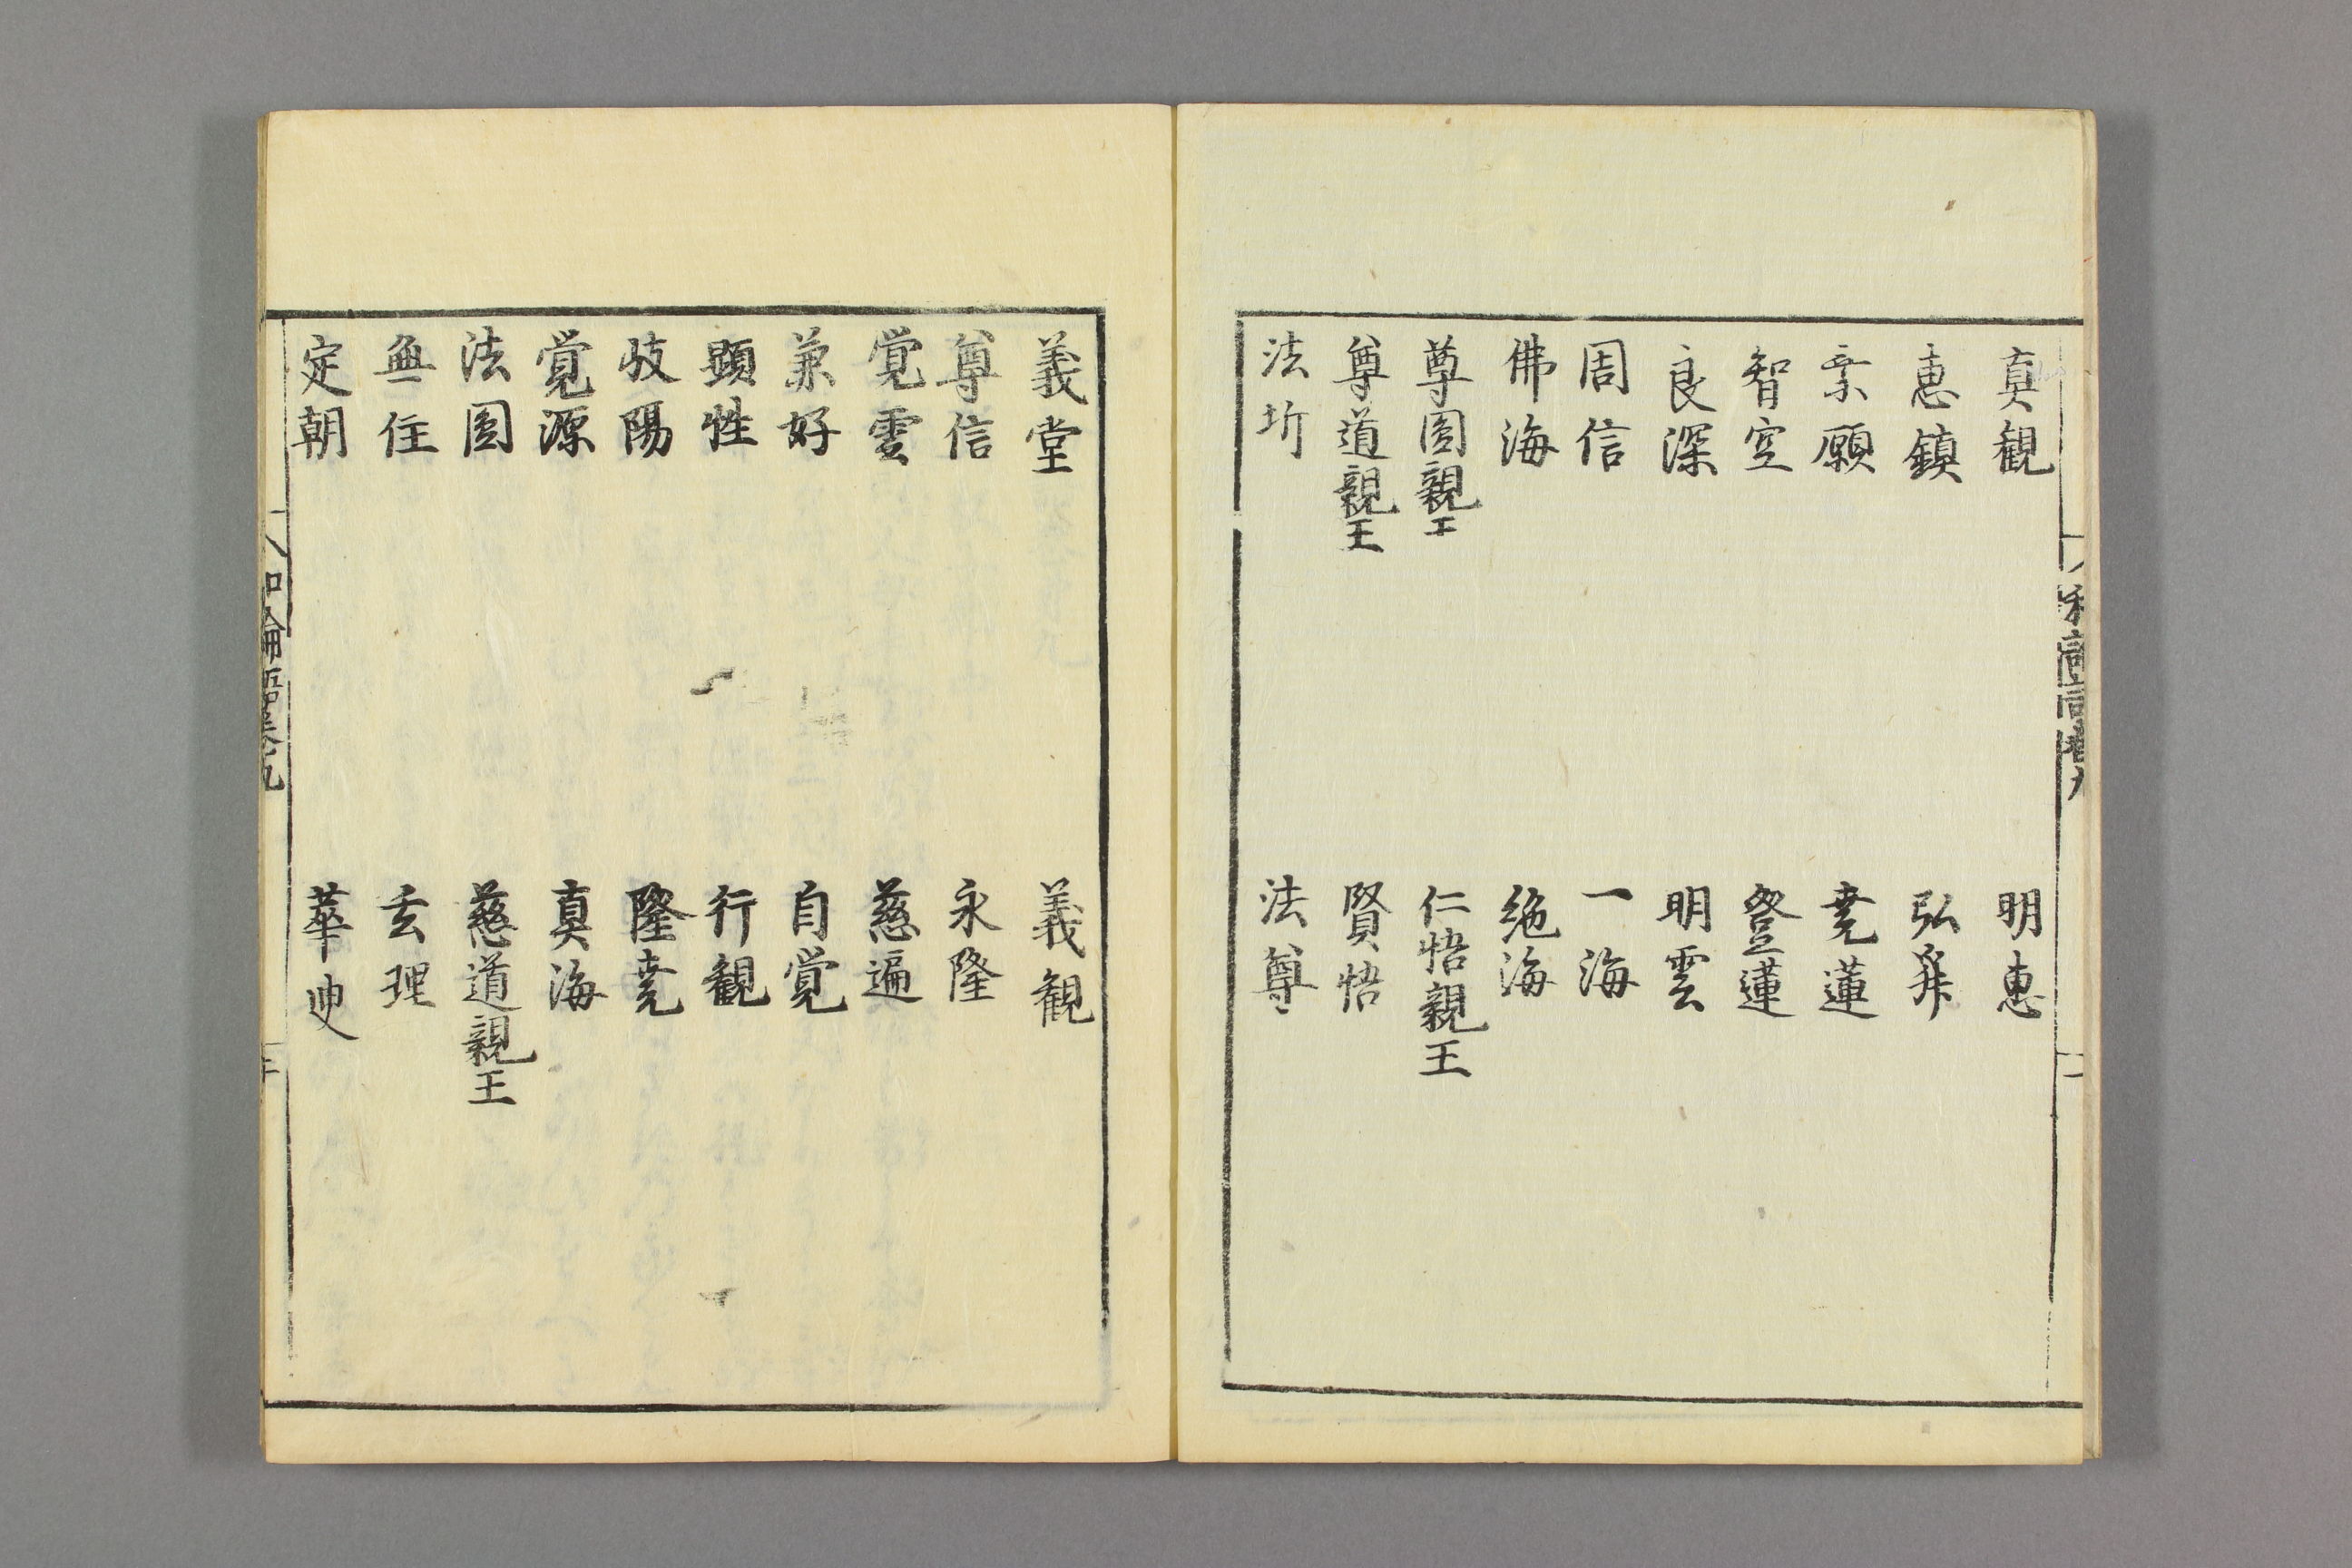 真観　明恵
恵鎮　弘
願　尭蓮
智空　登蓮
良深　明雲
周信　一海
佛海　絶海
尊圓親王　仁悟親王
尊道親王　賢悟
法圻　法尊
義堂　義観
尊信　永隆
覚雲　慈遍
兼好　自覚
顕性　行観
岐陽　隆尭
覚源　真海
法圓　慈道親王
無住　玄理
定朝　華
和論語巻九